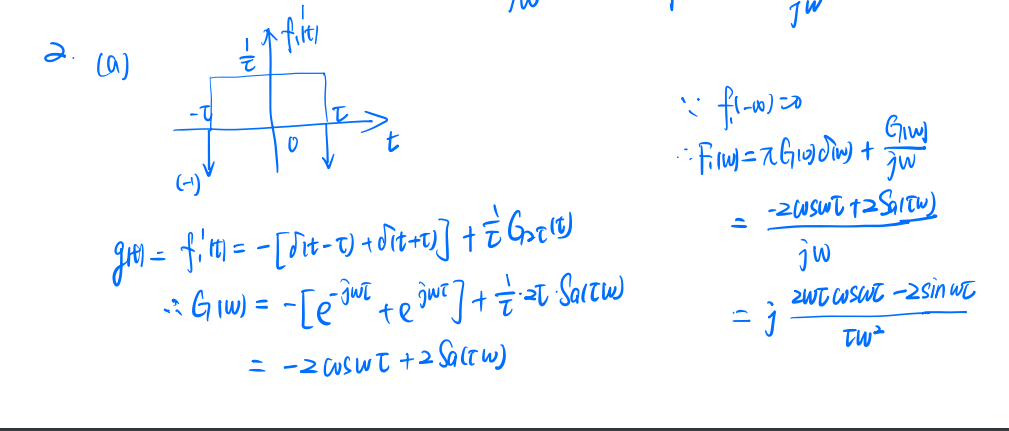 jw
2. (a)
1/τ f₁'(t)
-τ τ
0 t
(-1)
g(t) = f₁'(t) = -[δ(t-τ)+δ(t+τ)] + 1/τ G₂τ(t)
∴ G(w) = -[e^{-jwτ} + e^{jwτ}] + 1/τ·2τ·Sa(τw)
= -2coswτ + 2Sa(τw)
∵ f₁(-∞)=0
∴ F₁(w) = πG(0)δ(w) + G(w)/jw
= (-2coswτ+2Sa(τw))/jw
= j (2wτcoswτ - 2sinwτ)/τw²